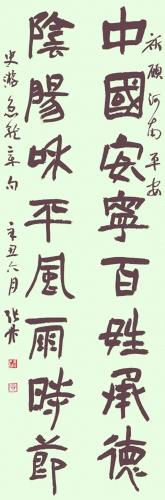 祈願河南平安
中國安寧百姓承德
陰陽咊平風雨時節
史游急就章句
辛丑六月